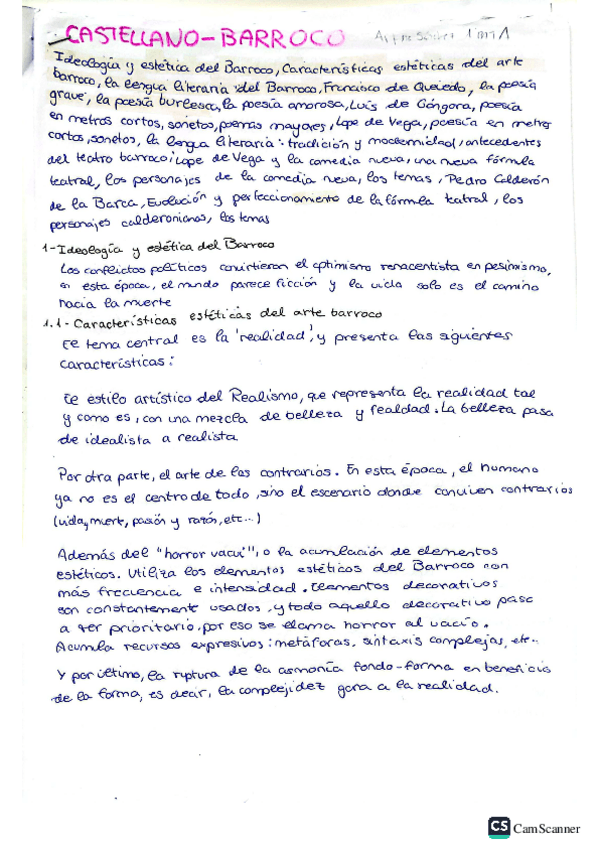 1
CASTELLANO - BARROCO
Ideología y estética del Barroco, Características estéticas del arte
barroco, la lengua literaria del Barroco, Francisco de Quevedo, la poesía
grave, la poesía burlesca, la poesía amorosa, Luís de Góngora, poesía
en metros cortos, sonetos, poemas mayores, Lope de Vega, poesía en metros
cortos, sonetos, la lengua literaria: tradición y modernidad, antecedentes
del teatro barroco, Lope de Vega y la comedia nueva, una nueva fórmula
teatral, los personajes de la comedia nueva, los temas, Pedro Calderón
de la Barca, Evolución y perfeccionamiento de la fórmula teatral, los
personajes calderonianos, los temas
1- Ideología y estética del Barroco
Los conflictos políticos convirtieron el optimismo renacentista en pesimismo,
en esta época, el mundo parece ficción y la vida solo es el camino
hacia la muerte
1.1- Características estéticas del arte barroco
El tema central es la 'realidad', y presenta las siguientes
características:
El estilo artístico del Realismo, que representa la realidad tal
y como es, con una mezcla de belleza y fealdad. La belleza pasa
de idealista a realista
Por otra parte, el arte de los contrarios. En esta época, el humano
ya no es el centro de todo, sino el escenario donde conviven contrarios
(vida y muerte, pasión y razón, etc...)
Además del "horror vacui", o la acumulación de elementos
estéticos. Utiliza los elementos estéticos del Barroco con
más frecuencia e intensidad. Elementos decorativos
son constantemente usados, y todo aquello decorativo pasa
a ser prioritario, por eso se llama horror al vacío.
Acumula recursos expresivos: metáforas, sintaxis complejas, etc..
Y por último, la ruptura de la armonía fondo-forma en beneficio
de la forma, es decir, la complejidez gana a la realidad.
CS CamScanner